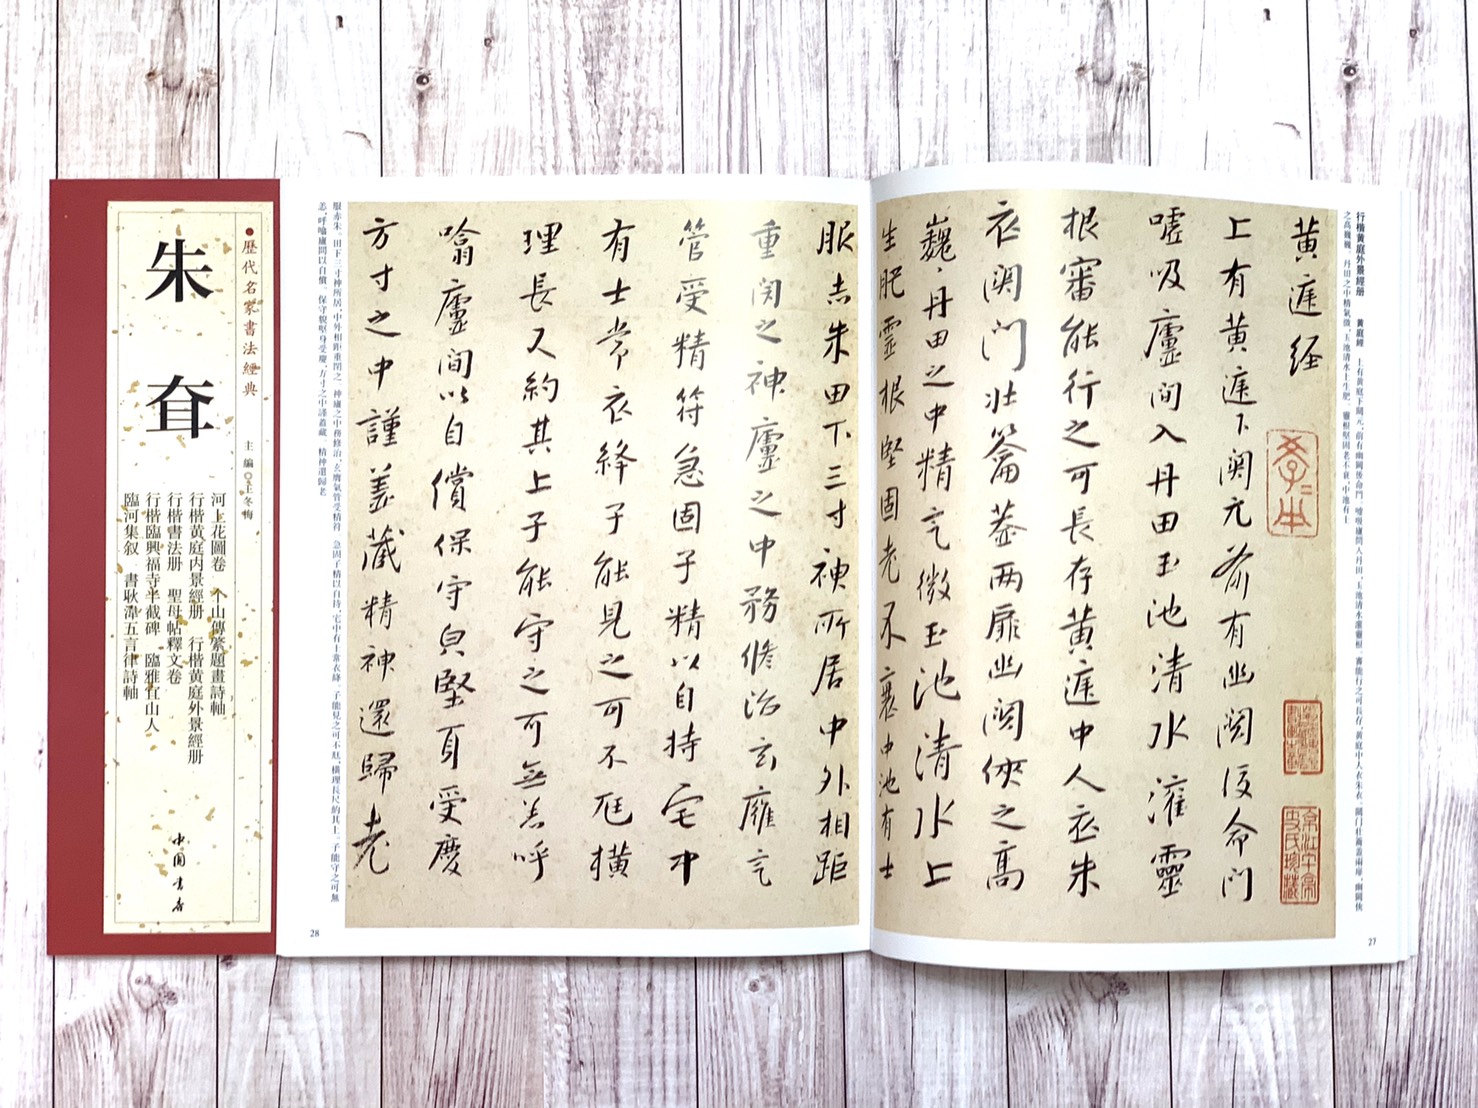 歷代名家書法經典
朱耷
主編 王冬梅
河上花圖卷 个山傳綮題畫詩軸
行楷黄庭内景經册 行楷黄庭外景經册
行楷書法册 聖母帖釋文卷
行楷臨興福寺半截碑 臨雅宜山人
臨河集叙 書耿湋五言律詩軸
中国书店
行楷黄庭外景經册 黄庭經 上有黄庭下關元，前有幽闕後命門，噓吸廬間入丹田，玉池清水灌靈根，審能行之可長存，黄庭中人衣朱衣，關門壯籥蓋兩扉，幽闕俠
之高巍巍，丹田之中精氣微，玉池清水上生肥，靈根堅固老不衰，中池有士
黄庭经
上有黄庭下関元前有幽闕后命门
嘘吸廬间入丹田玉池清水灌靈
根審能行之可長存黄庭中人衣朱
衣関门壮籥盖两扉幽闕俠之高
巍、丹田之中精气微玉池清水上
生肥靈根堅固老不衰中池有士
服赤朱田下三寸神所居中外相距
重闭之神廬之中務修治玄癰气
管受精符急固子精以自持宅中
有士常衣絳子能見之可不尪横
理長尺約其上子能守之可無恙呼
噏廬间以自償保守皃堅身受慶
方寸之中謹盖藏精神還歸老
服赤朱，田下三寸神所居，中外相距重閉之，神廬之中務修治，玄癰氣管受精符，急固子精以自持，宅中有士常衣絳，子能見之可不尪，横理長尺約其上，子能守之可無
恙，呼噏廬間以自償，保守皃堅身受慶，方寸之中謹蓋藏，精神還歸老
27
28